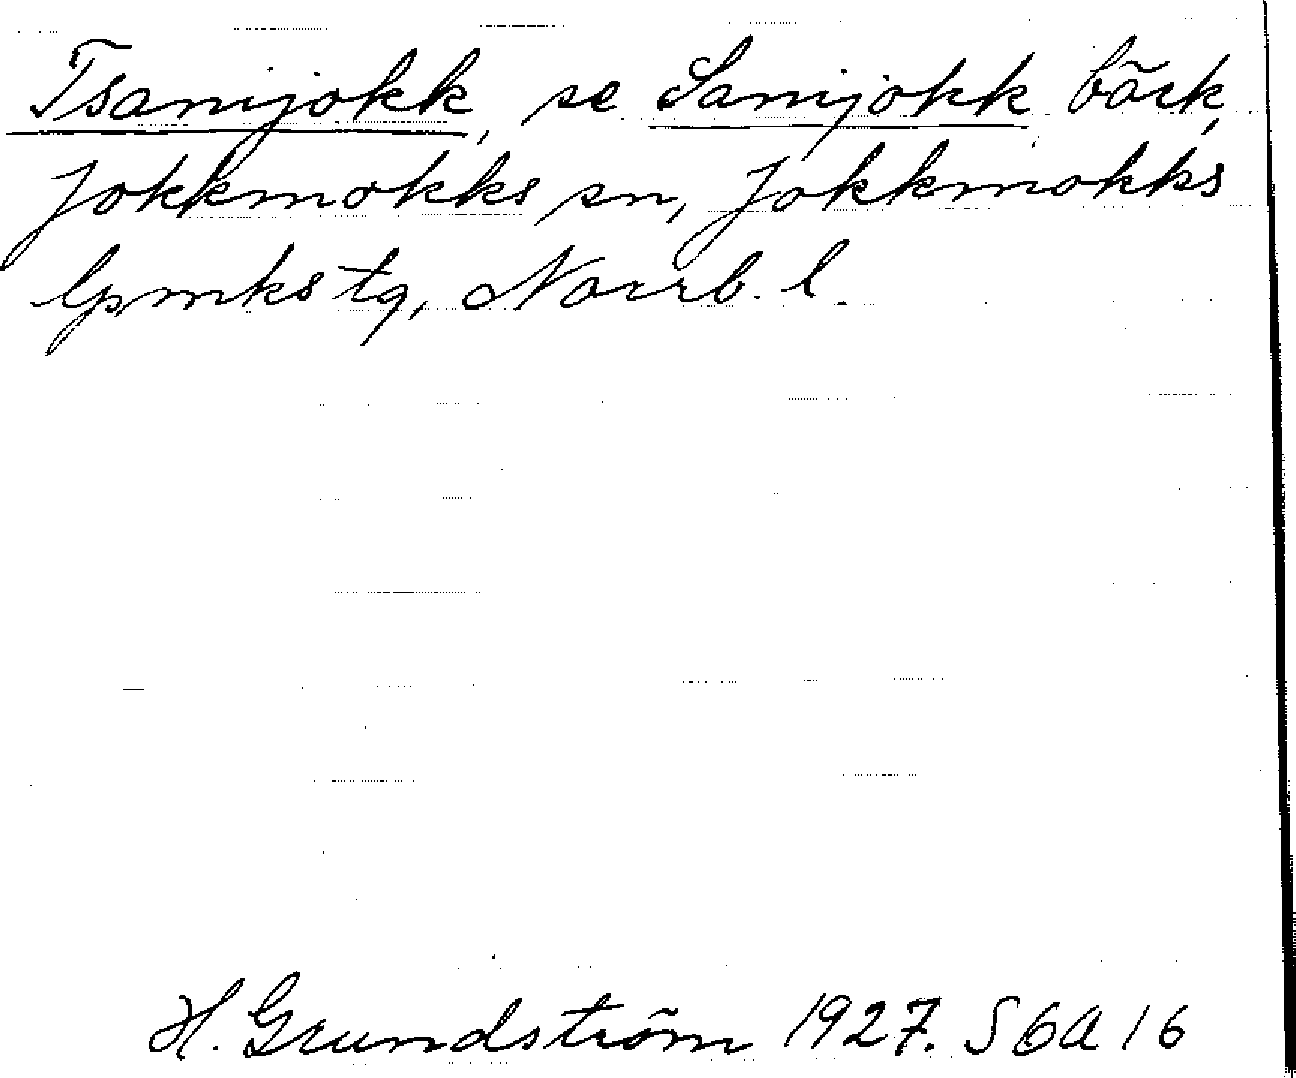 Tsamjokk, se Samjokk bäck,
Jokkmokks sn, Jokkmokks
lpmks tg, Norrb. l.
H. Grundström 1927. S 6A 16